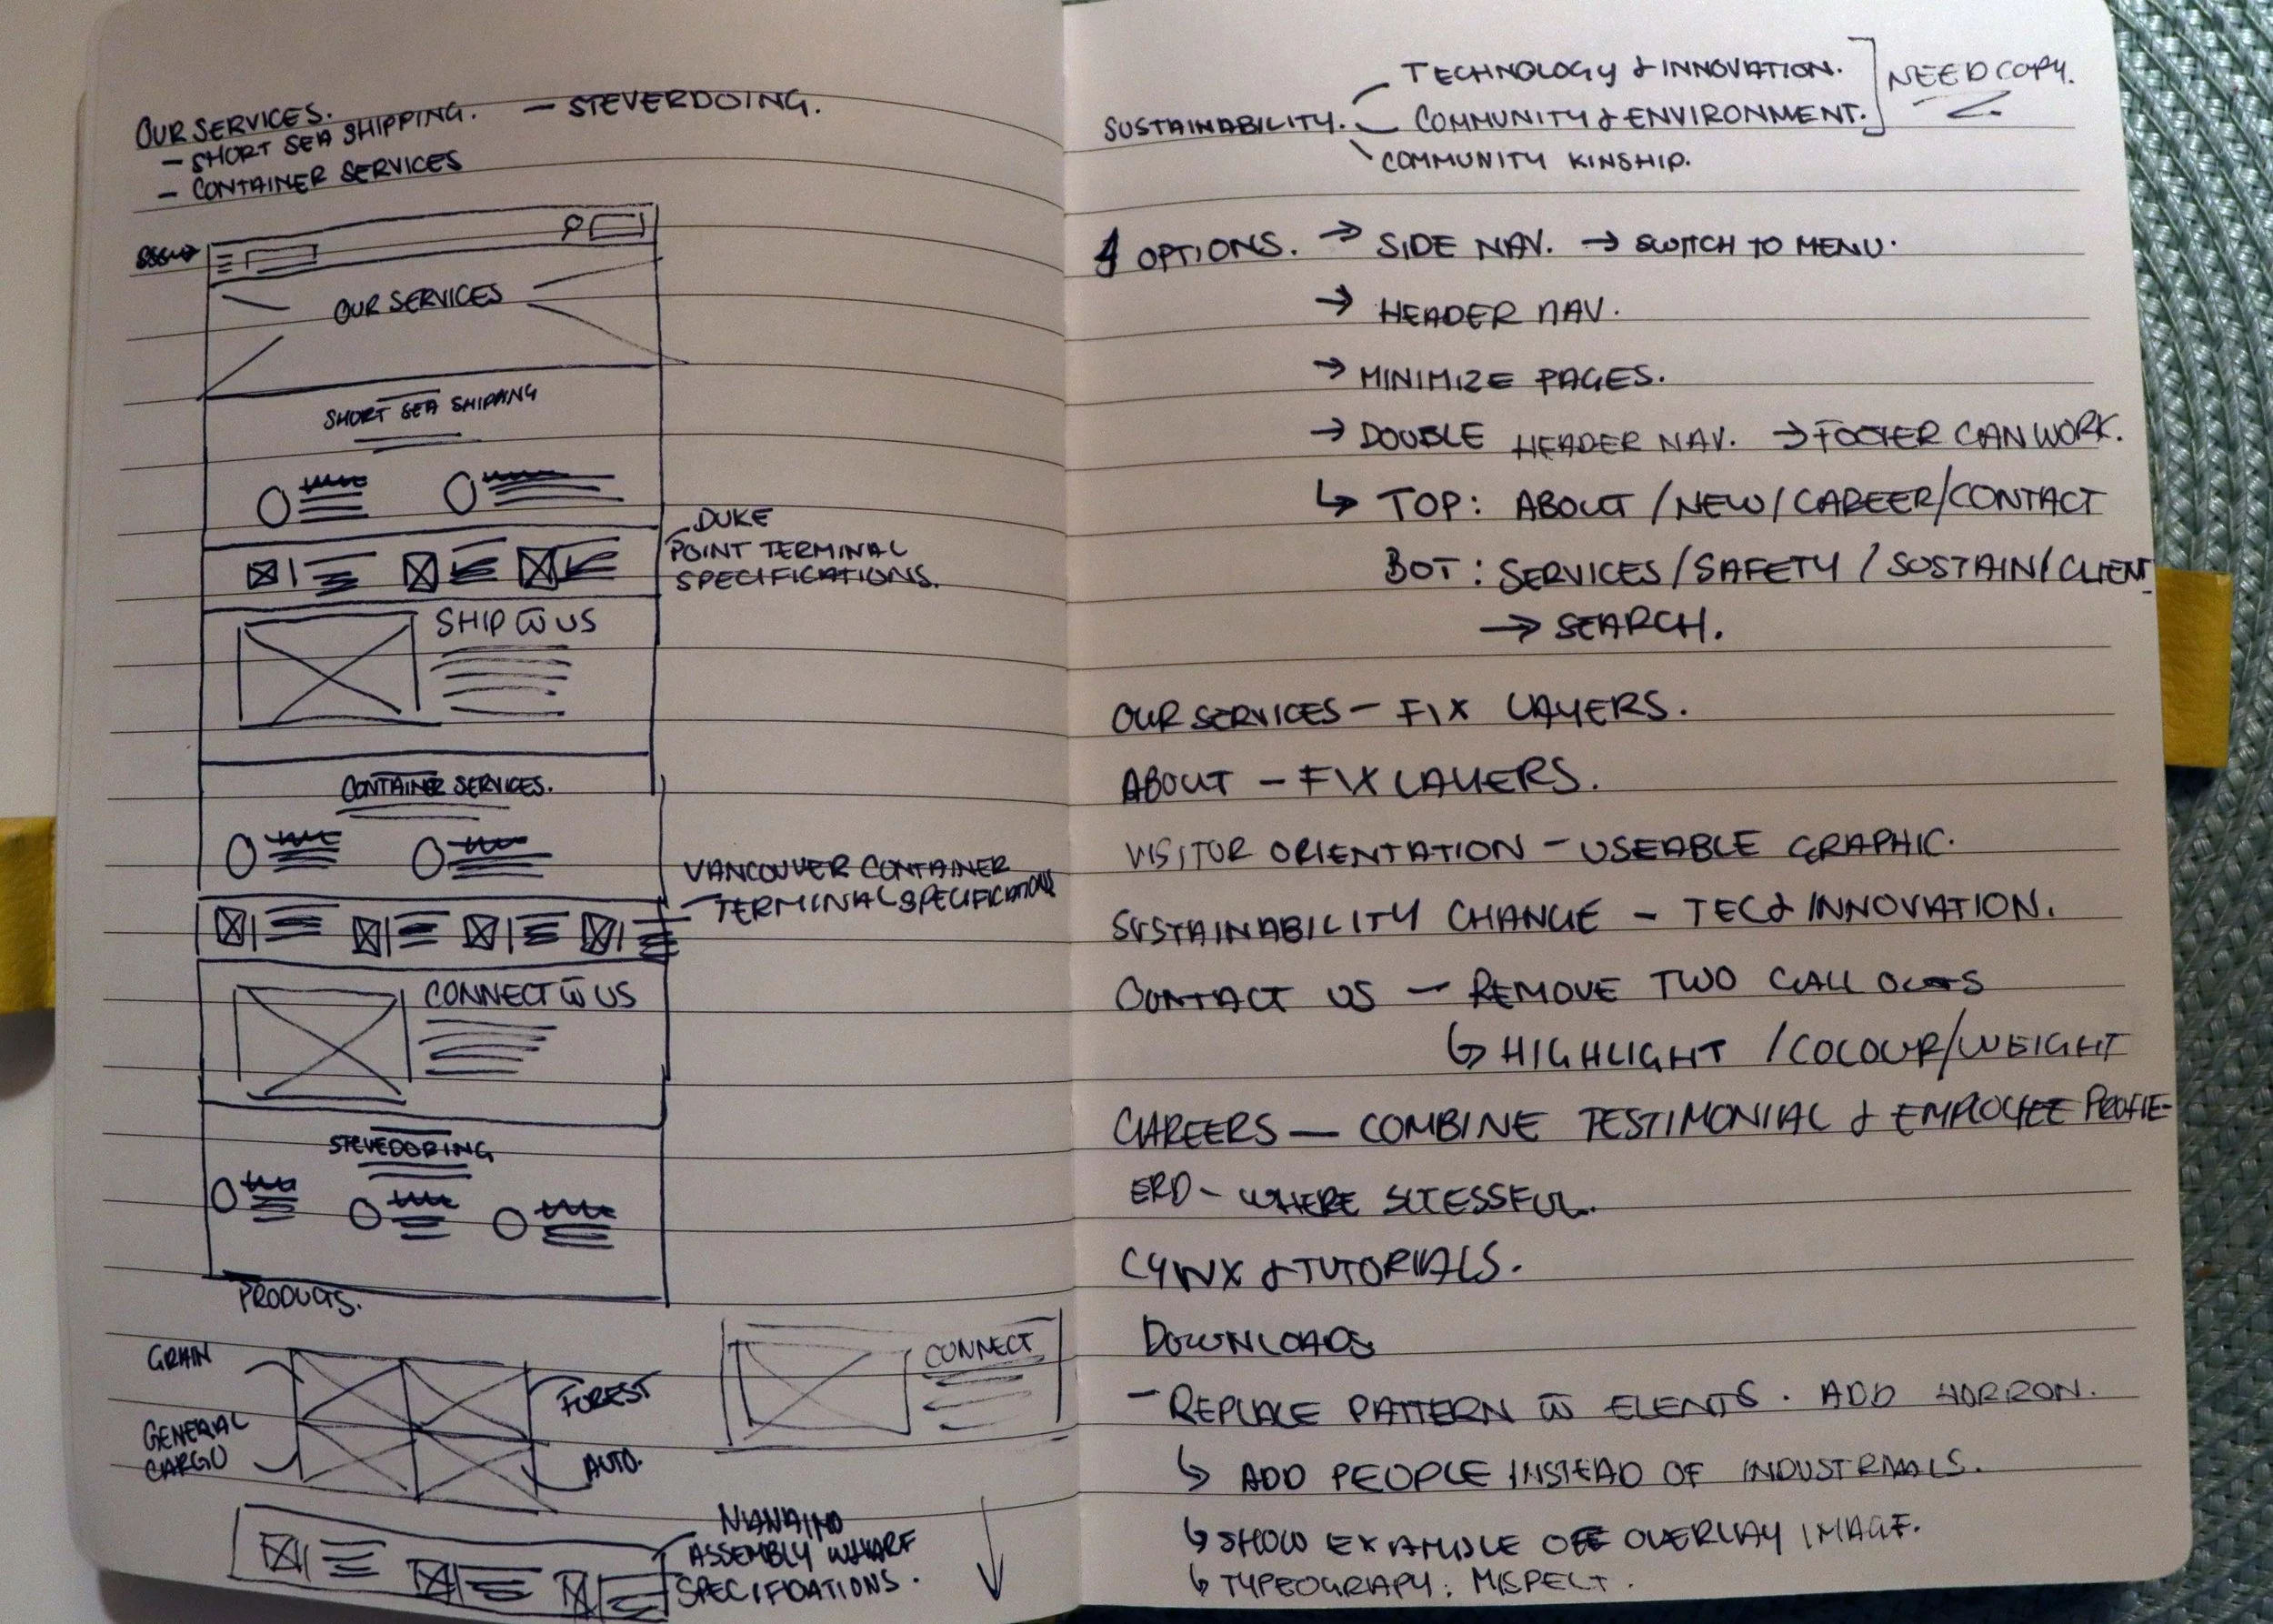 OUR SERVICES.
- SHORT SEA SHIPPING. - STEVERDOING.
- CONTAINER SERVICES
OUR SERVICES
SHORT SEA SHIPPING
DUKE
POINT TERMINAL
SPECIFICATIONS.
SHIP W̄ US
CONTAINER SERVICES.
VANCOUVER CONTAINER
TERMINAL SPECIFICATIONS
CONNECT W̄ US
STEVEDORING
PRODUCTS.
GRAIN
FOREST
GENERAL
CARGO
AUTO.
CONNECT
NANAIMO
ASSEMBLY WHARF
SPECIFICATIONS.
TECHNOLOGY & INNOVATION.
NEED COPY.
SUSTAINABILITY. COMMUNITY & ENVIRONMENT.
COMMUNITY KINSHIP.
4 OPTIONS. → SIDE NAV. → SWITCH TO MENU.
→ HEADER NAV.
→ MINIMIZE PAGES.
→ DOUBLE HEADER NAV. → FOOTER CAN WORK.
↳ TOP: ABOUT / NEW / CAREER / CONTACT
BOT: SERVICES / SAFETY / SUSTAIN / CLIENT
→ SEARCH.
OUR SERVICES - FIX LAYERS.
ABOUT - FIX LAYERS.
VISITOR ORIENTATION - USEABLE GRAPHIC.
SUSTAINABILITY CHANGE - TEC & INNOVATION.
CONTACT US - REMOVE TWO CALL OUTS
↳ HIGHLIGHT / COLOUR / WEIGHT
CAREERS - COMBINE TESTIMONIAL & EMPLOYEE PROFIE-
ERD - WHERE
& TUTORIALS.
DOWNLOADS
- REPLACE PATTERN W̄ ELENTS. ADD
↳ ADD PEOPLE INSTEAD OF
↳ SHOW EXAMPLE OFF OVERLAY IMAGE.
↳ TYPEOGRAPY: MISPELT.